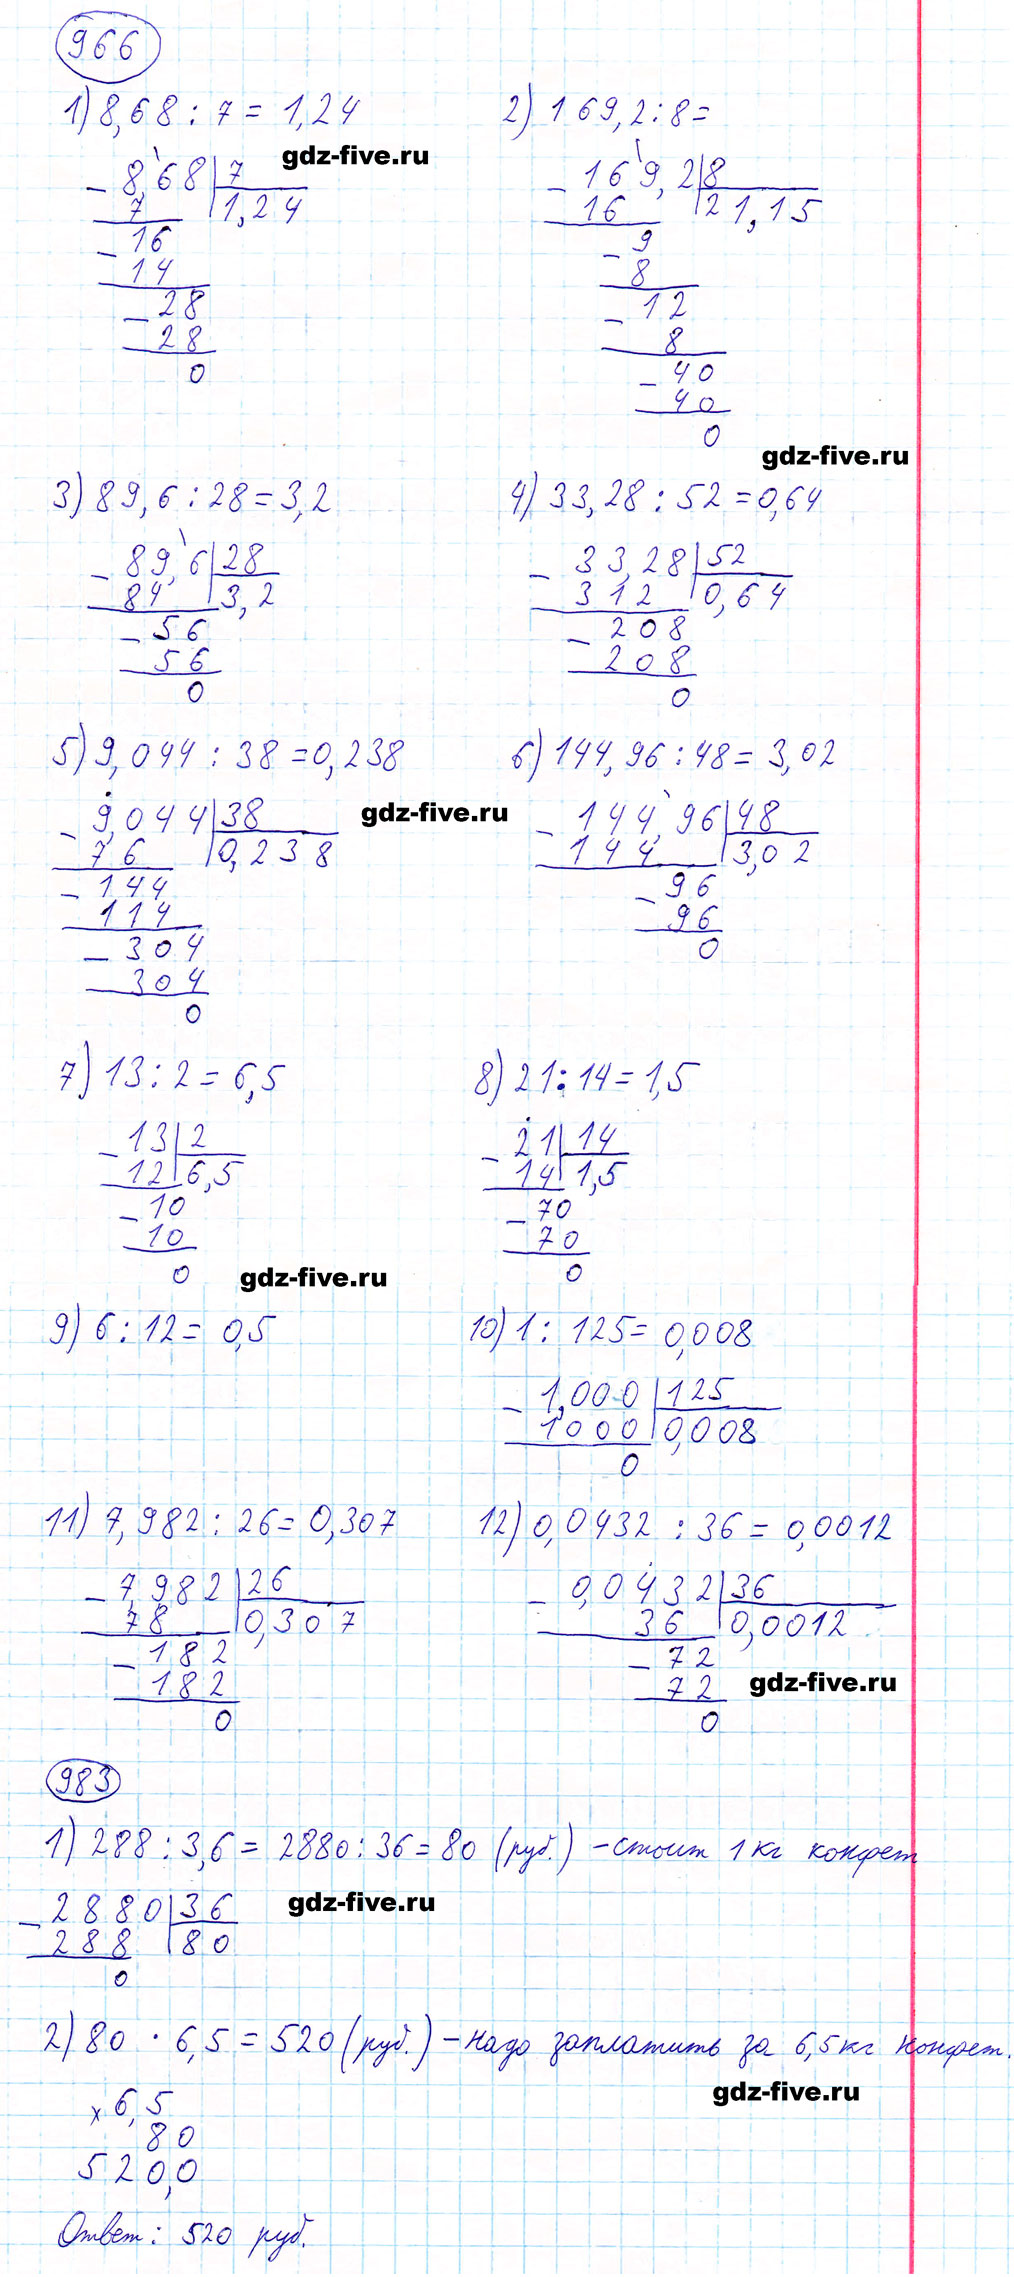 966
1) 8,68 : 7 = 1,24
gdz-five.ru
8,68 | 7
7 | 1,24
16
14
28
28
0
2) 169,2 : 8 =
169,2 | 8
16 | 21,15
9
8
12
8
40
40
0
gdz-five.ru
3) 89,6 : 28 = 3,2
89,6 | 28
84 | 3,2
56
56
0
4) 33,28 : 52 = 0,64
33,28 | 52
312 | 0,64
208
208
0
5) 9,044 : 38 = 0,238
9,044 | 38
76 | 0,238
144
114
304
304
0
gdz-five.ru
6) 144,96 : 48 = 3,02
144,96 | 48
144 | 3,02
96
96
0
7) 13 : 2 = 6,5
13 | 2
12 | 6,5
10
10
0
gdz-five.ru
8) 21 : 14 = 1,5
21 | 14
14 | 1,5
70
70
0
9) 6 : 12 = 0,5
10) 1 : 125 = 0,008
1,000 | 125
1000 | 0,008
0
11) 7,982 : 26 = 0,307
7,982 | 26
78 | 0,307
182
182
0
12) 0,0432 : 36 = 0,0012
0,0432 | 36
36 | 0,0012
72
72
0
gdz-five.ru
983
1) 288 : 3,6 = 2880 : 36 = 80 (руб.) – стоит 1 кг конфет
2880 | 36
288 | 80
0
gdz-five.ru
2) 80 · 6,5 = 520 (руб.) – надо заплатить за 6,5 кг конфет.
gdz-five.ru
x 6,5
80
520,0
Ответ: 520 руб.